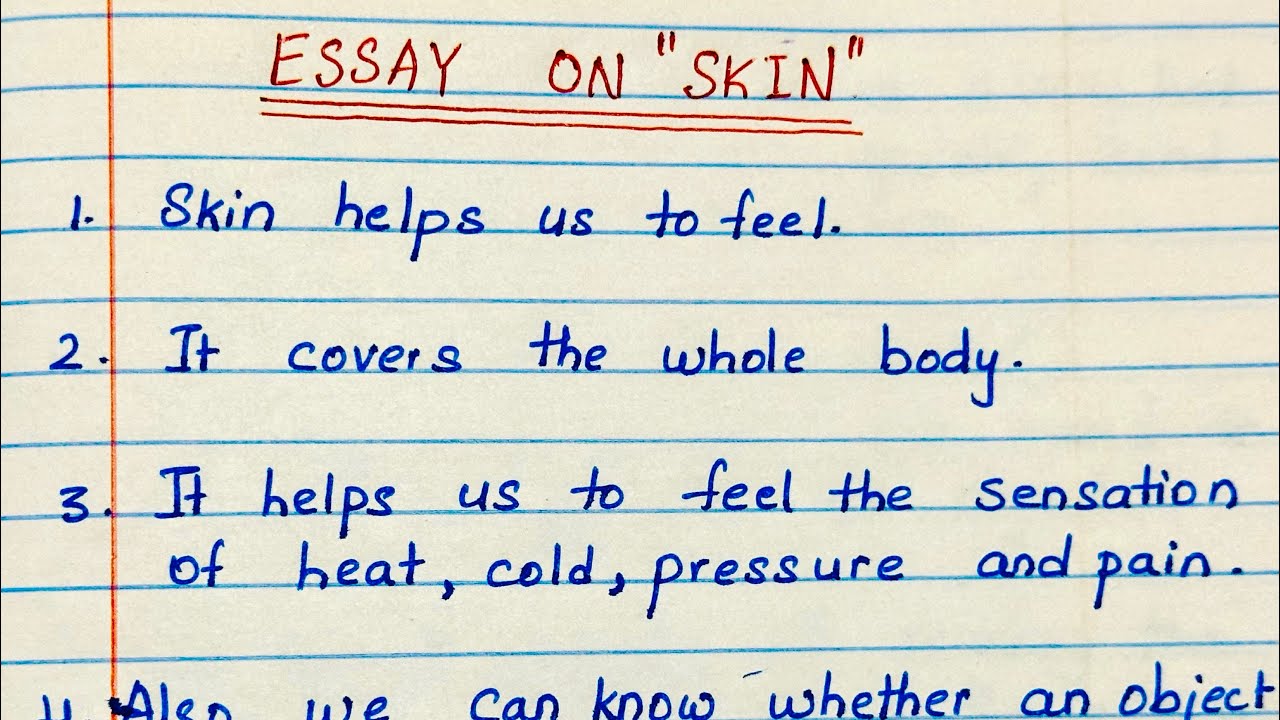 ESSAY ON "SKIN"
1. Skin helps us to feel.
2. It covers the whole body.
3. It helps us to feel the sensation
of heat, cold, pressure and pain.
4. Also we can know whether an object